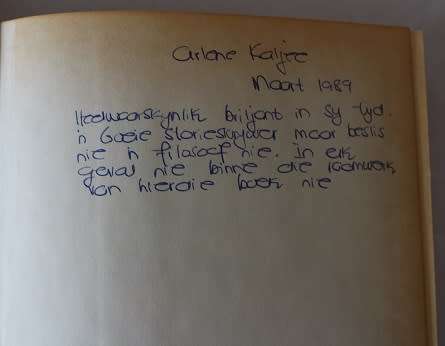 Arlene Kaljee
Maart 1989
Heelwaarskynlik briljant in sy tyd.
'n Goeie storieskrywer maar beslis
nie 'n filosoof nie. In elk
geval nie binne die raamwerk
van hierdie boek nie